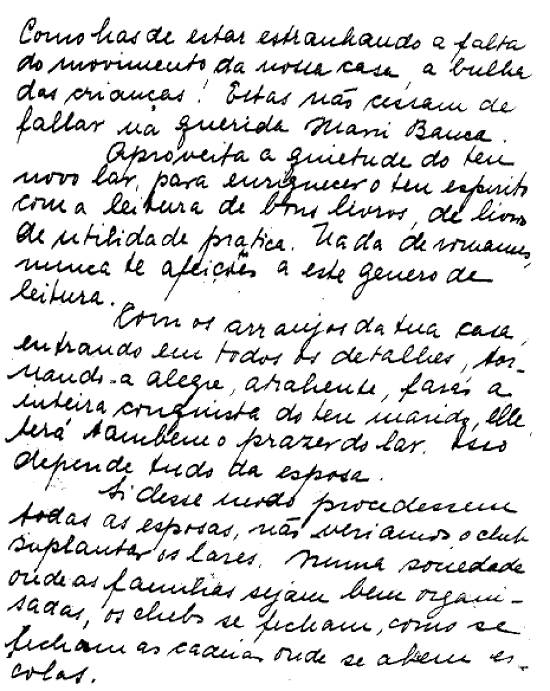 Como has de estar estranhando a falta
do movimento da nossa casa, a bulha
das crianças! Estas não cessam de
fallar na querida Mami Bauca.
Aproveita a quietude do teu
novo lar, para enriquecer o teu espirito
com a leitura de bons livros, de livros
de utilidade pratica. Nada de romances,
nunca te afeiçôes a este genero de
leitura.
Com os arranjos da tua casa,
entrando em todos os detalhes, tor-
nando-a alegre, atrahente, farás a
inteira conquista do teu marido, elle
terá tambem o prazer do lar. Isso
depende tudo da esposa.
Si desse modo procedessem
todas as esposas, não veriamos o club
suplantar os lares. Numa sociedade
onde as familias sejam bem organi-
sadas, os clubs se fecham, como se
fecham as cadeias onde se abem es-
colas.